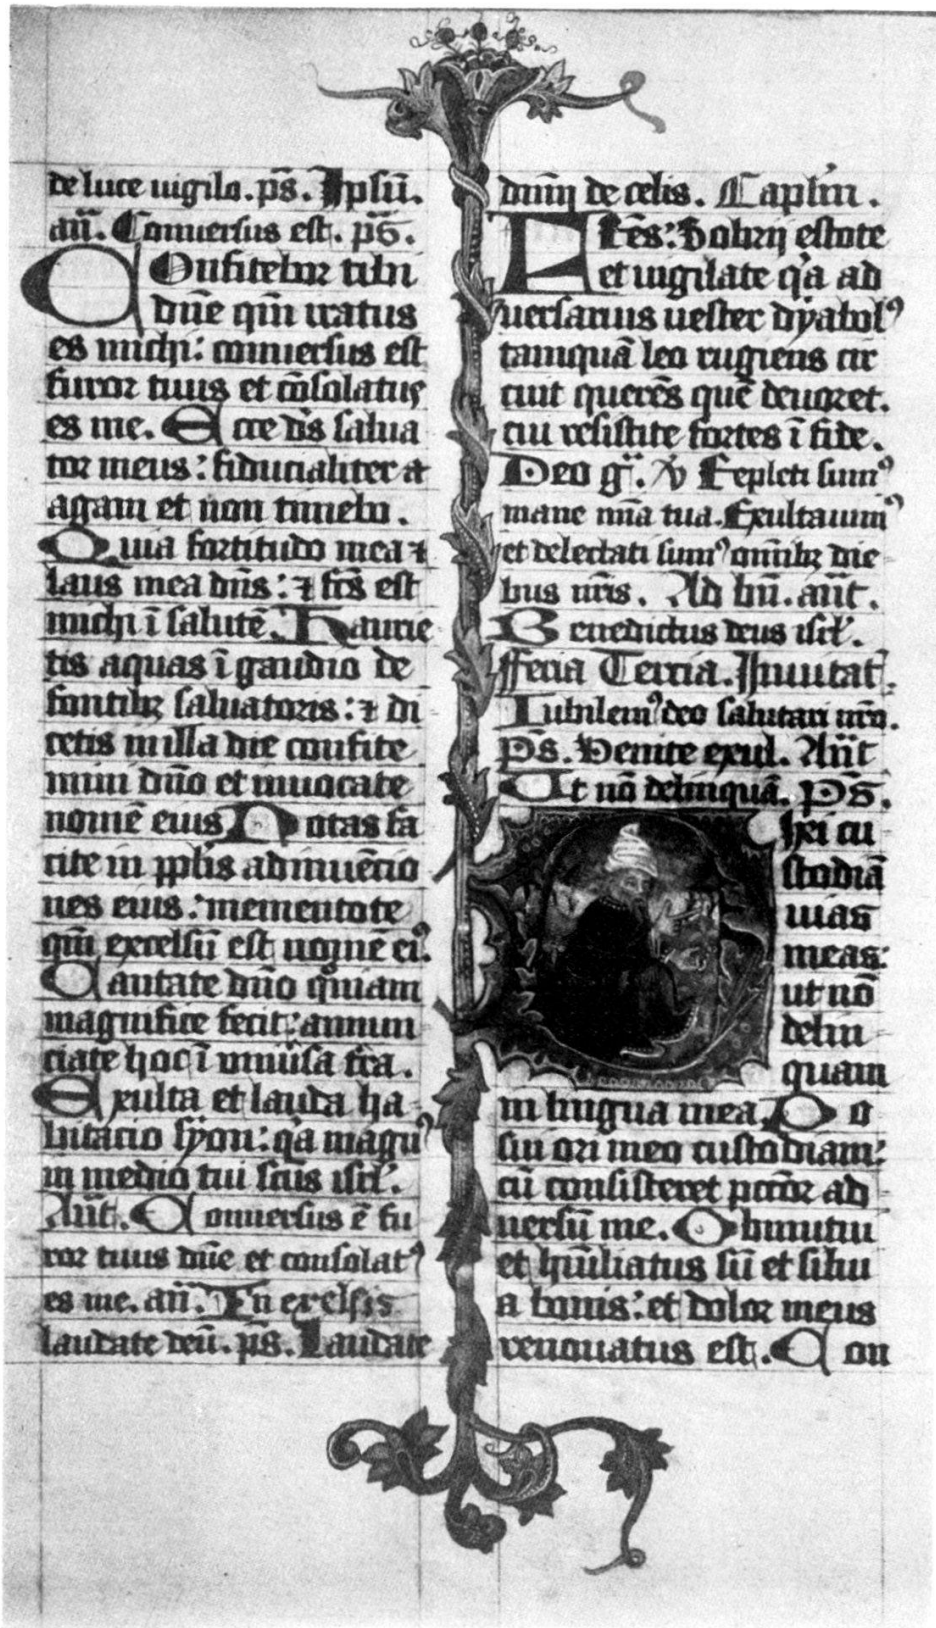 de luce uigilo. ps̄. Ipsū.
an̄. Conuersus est. ps̄.
Confitebor tibi
dn̄e qm̄ iratus
es michi: conuersus est
furor tuus et cōsolatus
es me. Ecce ds̄ salua
tor meus: fiducialiter a
agam et non timebo.
Quia fortitudo mea ⁊
laus mea dn̄s: ⁊ fc̄s est
michi ī salutē. Haurie
tis aquas ī gaudio de
fontibꝫ saluatoris: ⁊ di
cetis in illa die confite
mini dn̄o et inuocate
nomē eius Notas fa
cite in ppl̄is adinuētio
nes eius: mementote
qm̄ excelsū est nomē eiꝰ.
Cantate dn̄o qm̄iam
magnifice fecit: annun
ciate hoc ī uniūsa t̄ra.
Exulta et lauda ha
bitacio syon: q̄a magnꝰ
in medio tui sc̄us isrl̄.
An̄t. Conuersus ē fu
ror tuus dn̄e et consolatꝰ
es me. an̄. In excelsis
laudate deū. ps̄. Laudate
dnm̄ de celis. Capl̄m.
Fr̄es: Sobrij estote
et uigilate q̄a ad
uersarius uester dyabolꝰ
tamquā leo rugiens cir
cuit querēs quē deuoret.
cui resistite fortes ī fide.
Deo gr̄. ℣ Repleti sumꝰ
mane mīa tua. Exultauimꝰ
et delectati sumꝰ om̄ibꝫ die
bus nr̄is. Ad bn̄. an̄t.
Benedictus deus isrl̄.
fferia Tercia. Inuitat̄.
Iubilemꝰ deo salutari nr̄o.
ps̄. Venite exul. An̄t
Ut nō delinquā. ps̄.
Dixi cu
stodiā
uias
meas:
ut nō
delin
quam
in lingua mea. Po
sui ori meo custodiam:
cū consisteret pcc̄or ad
uersū me. Obmutui
et hūiliatus sū et silui
a bonis: et dolor meus
renouatus est. Con